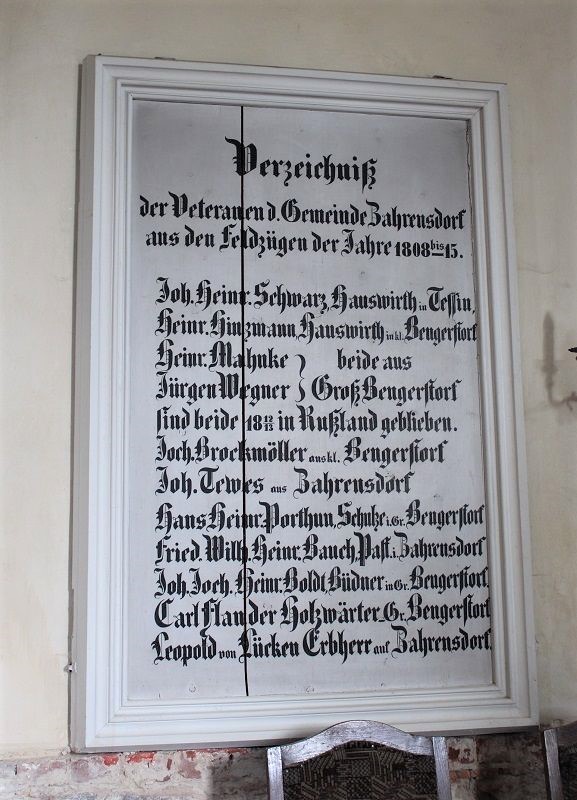 Verzeichniß
der Veteranen d. Gemeinde Zahrensdorf
aus den Feldzügen der Jahre 1808 bis 15.
Joh. Heinr. Schwarz, Hauswirth in Tessin,
Heinr. Hinzmann, Hauswirth in kl. Bengerstorf
Heinr. Mahnke } beide aus
Jürgen Wegner } Groß Bengerstorf
sind beide 18 12/13 in Rußland geblieben.
Joch. Brockmöller aus kl. Bengerstorf
Joh. Tewes aus Zahrensdorf
Hans Heinr. Porthun, Schulze i. Gr. Bengerstorf
Fried. Wilh. Heinr. Bauch, Past. i. Zahrensdorf
Joh. Joch. Heinr. Boldt, Büdner in Gr. Bengerstorf.
Carl Flander Holzwärter, Gr. Bengerstorf
Leopold von Lücken Erbherr auf Zahrensdorf.